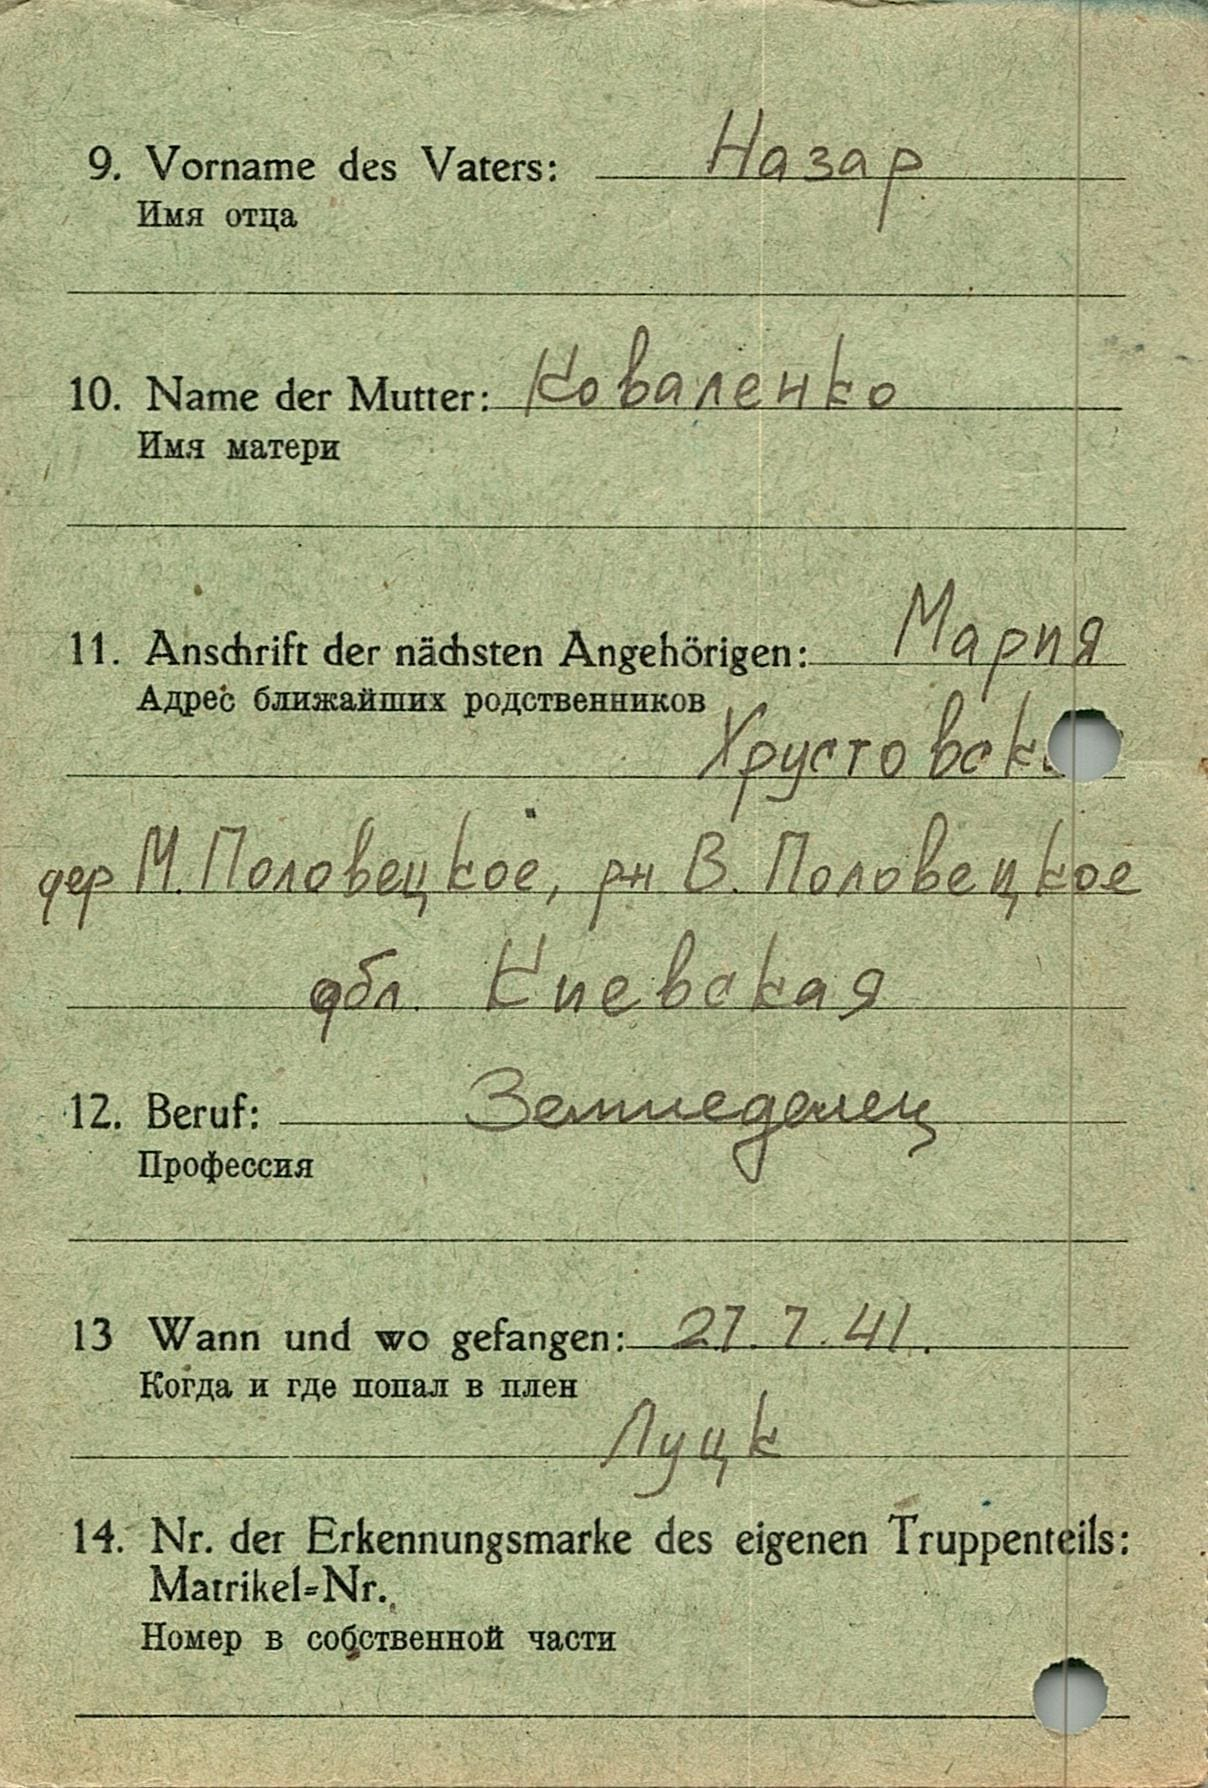 9. Vorname des Vaters: Назар
Имя отца
10. Name der Mutter: Коваленко
Имя матери
11. Anschrift der nächsten Angehörigen: Мария
Адрес ближайших родственников
дер М. Половецкое, рн В. Половецкое
обл. Киевская
12. Beruf: Земледелец
Профессия
13 Wann und wo gefangen: 27.7.41.
Когда и где попал в плен
Луцк
14. Nr. der Erkennungsmarke des eigenen Truppenteils:
Matrikel=Nr.
Номер в собственной части